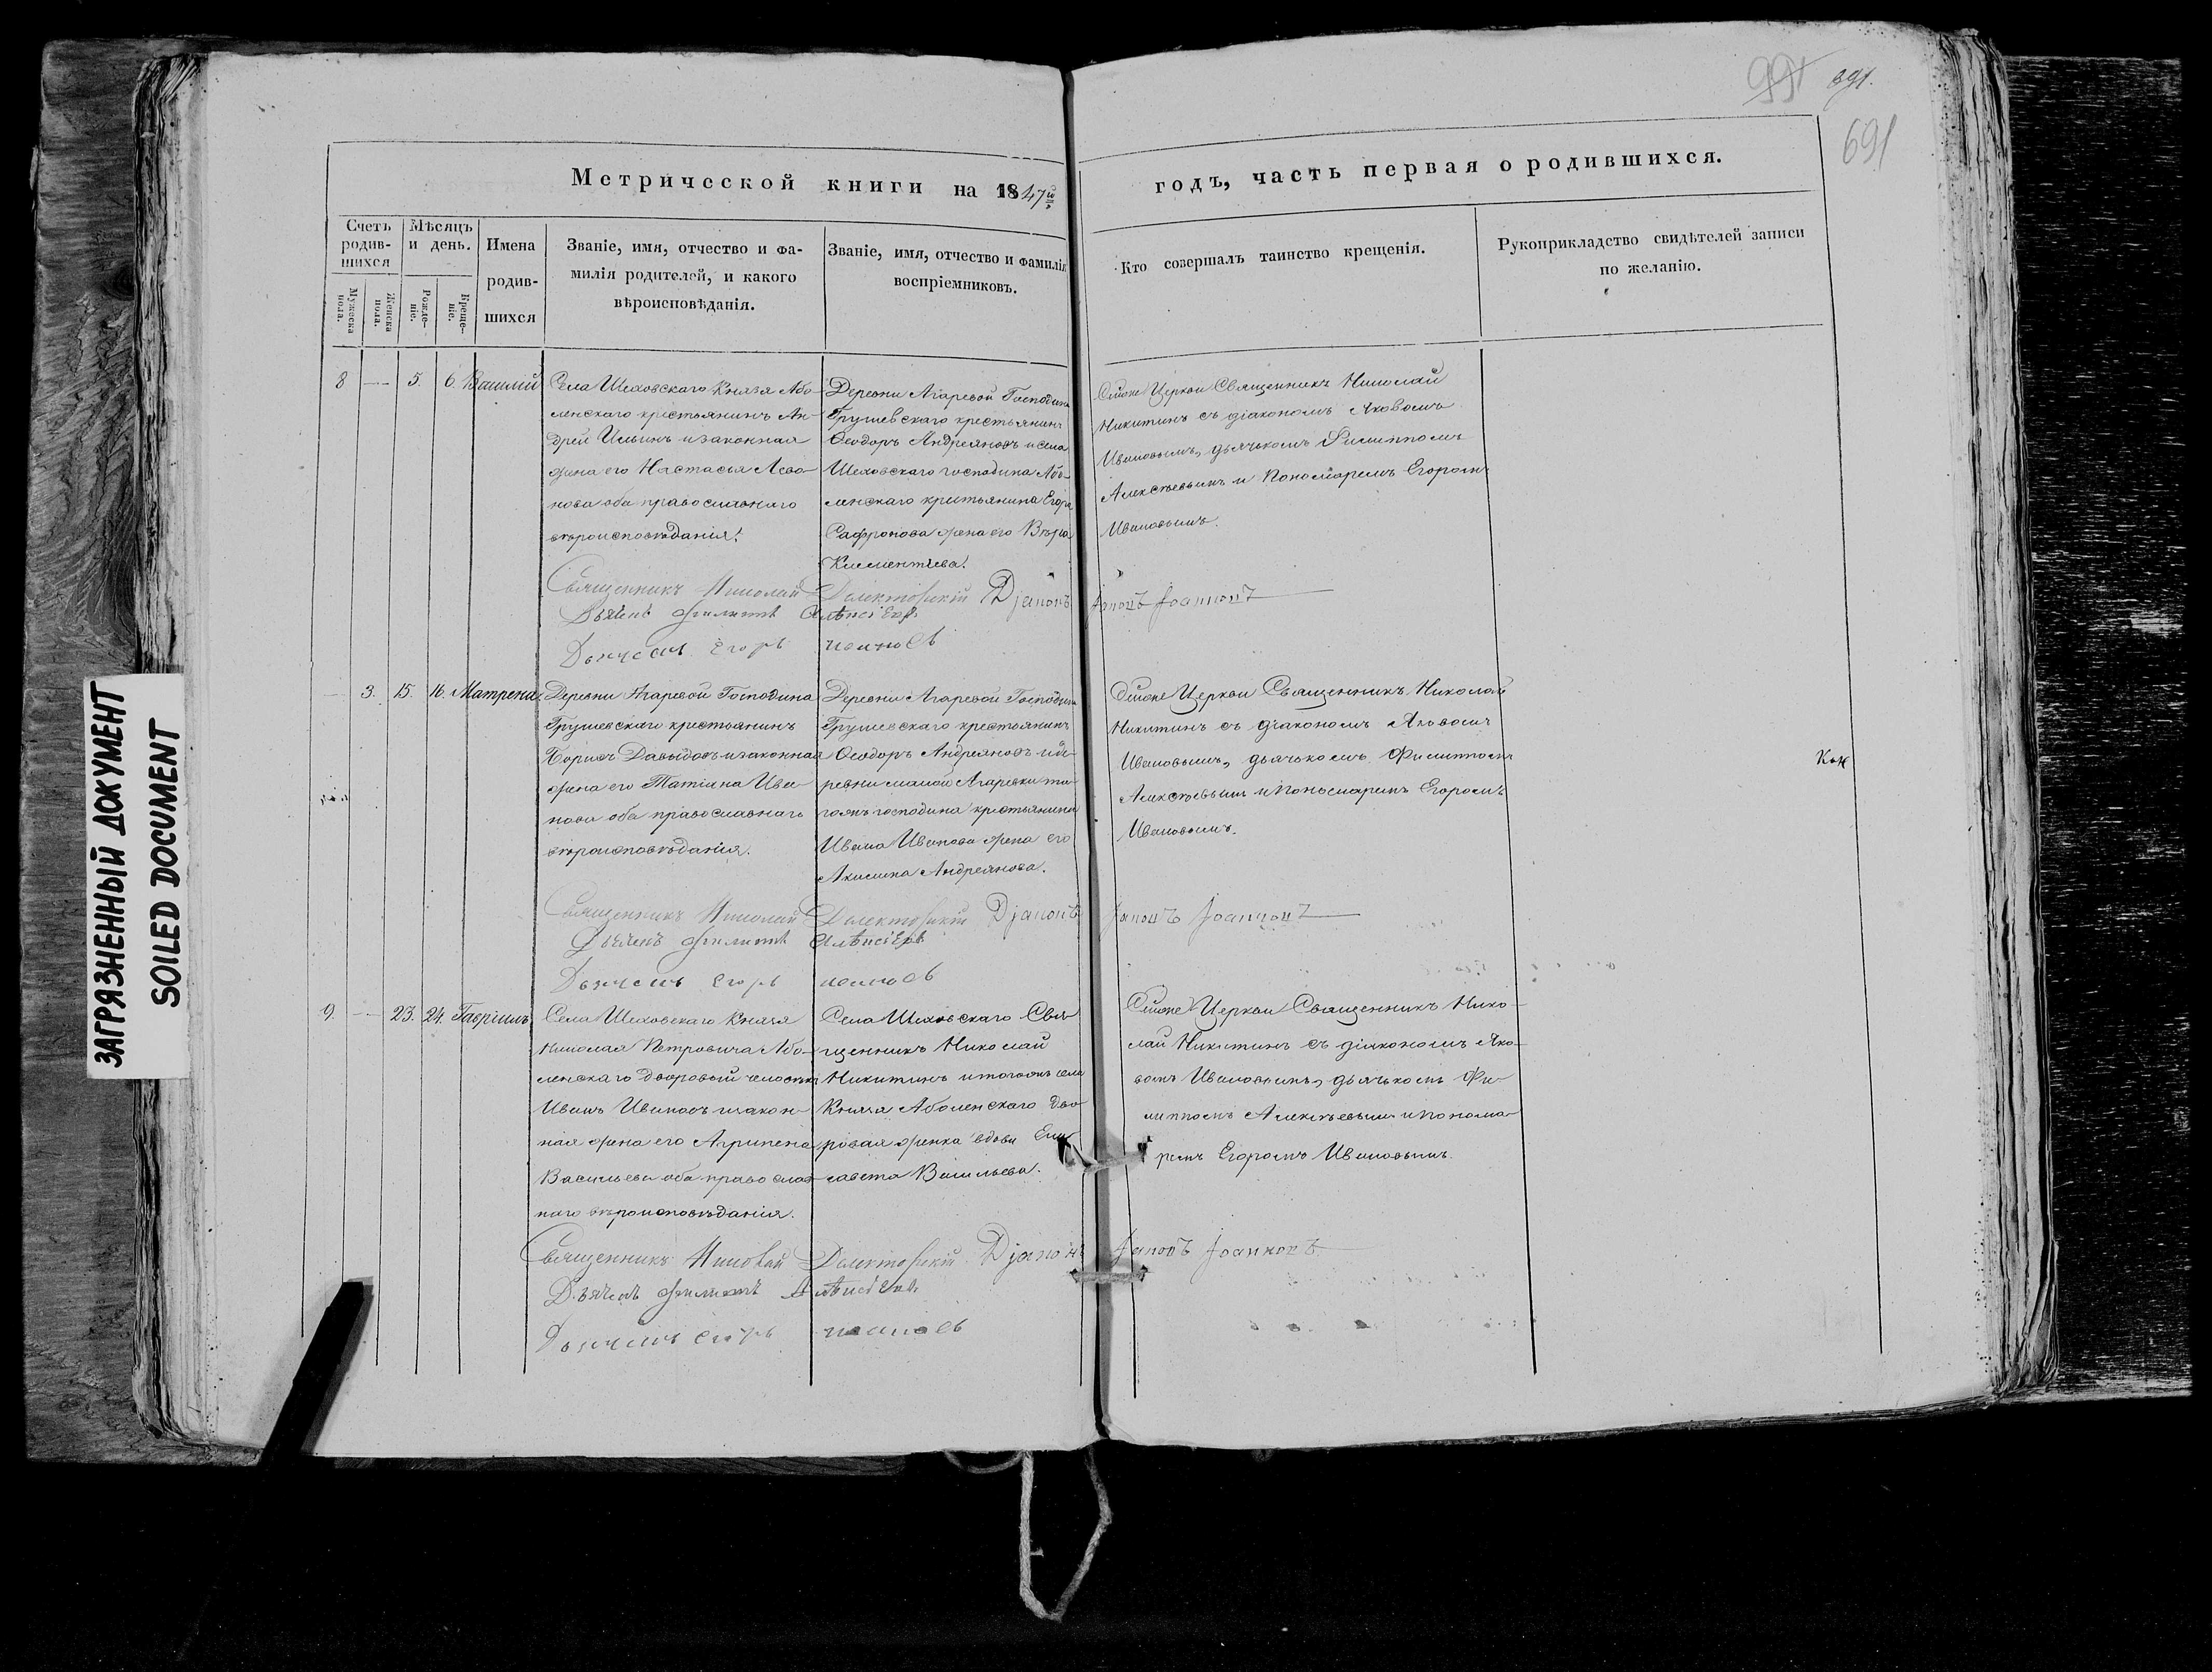 991 391.
691
Метрической книги на 1847й
годъ, часть первая о родившихся.
Счетъ родив-шихся
Мужеска пола.
Женска пола.
Мѣсяцъ и день.
Рожде-ніе.
Креще-ніе.
Имена родив-шихся
Званіе, имя, отчество и фа-
милія родителей, и какого
вѣроисповѣданія.
Званіе, имя, отчество и фамилія
воспріемниковъ.
Кто совершалъ таинство крещенія.
Рукоприкладство свидѣтелей записи
по желанію.
8 — 5. 6. Василій
Села Шеховскаго Князя Або-
ленскаго крестьянинъ Ан-
дрей Ильинъ и законная
жена его Настасья Лево-
нова оба православнаго
вѣроисповѣданія.
Деревни Агаревой Господина
Грушевскаго крестьянинъ
Ѳеодоръ Андреяновъ и села
Шеховскаго господина Або-
ленскаго крестьянина Егора
Сафронова жена его Вѣра
Клементьева.
Священникъ Николай
Никитинъ съ діакономъ Яковомъ
Ивановымъ, дьячькомъ Филиппомъ
Алексѣевымъ и Пономаремъ Егоромъ
Ивановымъ.
Священникъ Николай Діаконъ
Іаковъ Іоанновъ
Дьячекъ Филиппъ Алѣксіевъ
Дьячекъ Егоръ
3. 15. 16. Матрена
Деревни Агаревой Господина
Грушевскаго крестьянинъ
Борисъ Давыдовъ и законная
жена его Татіана Ива-
нова оба православнаго
вѣроисповѣданія.
Деревни Агаревой Господина
Грушевскаго крестьянинъ
Ѳеодоръ Андреяновъ и де-
ревни самой Агаревки то-
гожъ господина крестьянина
Ивана Иванова жена его
Акилина Андреянова.
Церкви Священникъ Николай
Никитинъ съ діакономъ Яковомъ
Ивановымъ, дьячькомъ Филиппомъ
Алексѣевымъ и Пономаремъ Егоромъ
Ивановымъ.
Священникъ Николай Діаконъ
Іаковъ Іоанновъ
Дьячекъ Филиппъ Алѣксіевъ
Дьячекъ Егоръ
9. — 23. 24. Гавріилъ
Села Шеховскаго Князя
Николая Петровича Або-
ленскаго дворовый человѣкъ
Иванъ Ивановъ и закон-
ная жена его Агрипена
Васильева оба православ-
наго вѣроисповѣданія.
Села Шеховскаго Свя-
щенникъ Николай
Никитинъ и тогожъ села
Князя Аболенскаго дво-
ровая женка вдова Ели-
савета Васильева.
Церкви Священникъ Нико-
лай Никитинъ съ діакономъ Яко-
вомъ Ивановымъ, дьячькомъ Фи-
липпомъ Алексѣевымъ и Понома-
ремъ Егоромъ Ивановымъ.
Священникъ Николай Діаконъ
Іаковъ Іоанновъ
Дьячекъ Филиппъ
Дьячекъ Егоръ
ЗАГРЯЗНЕННЫЙ ДОКУМЕНТ
SOILED DOCUMENT